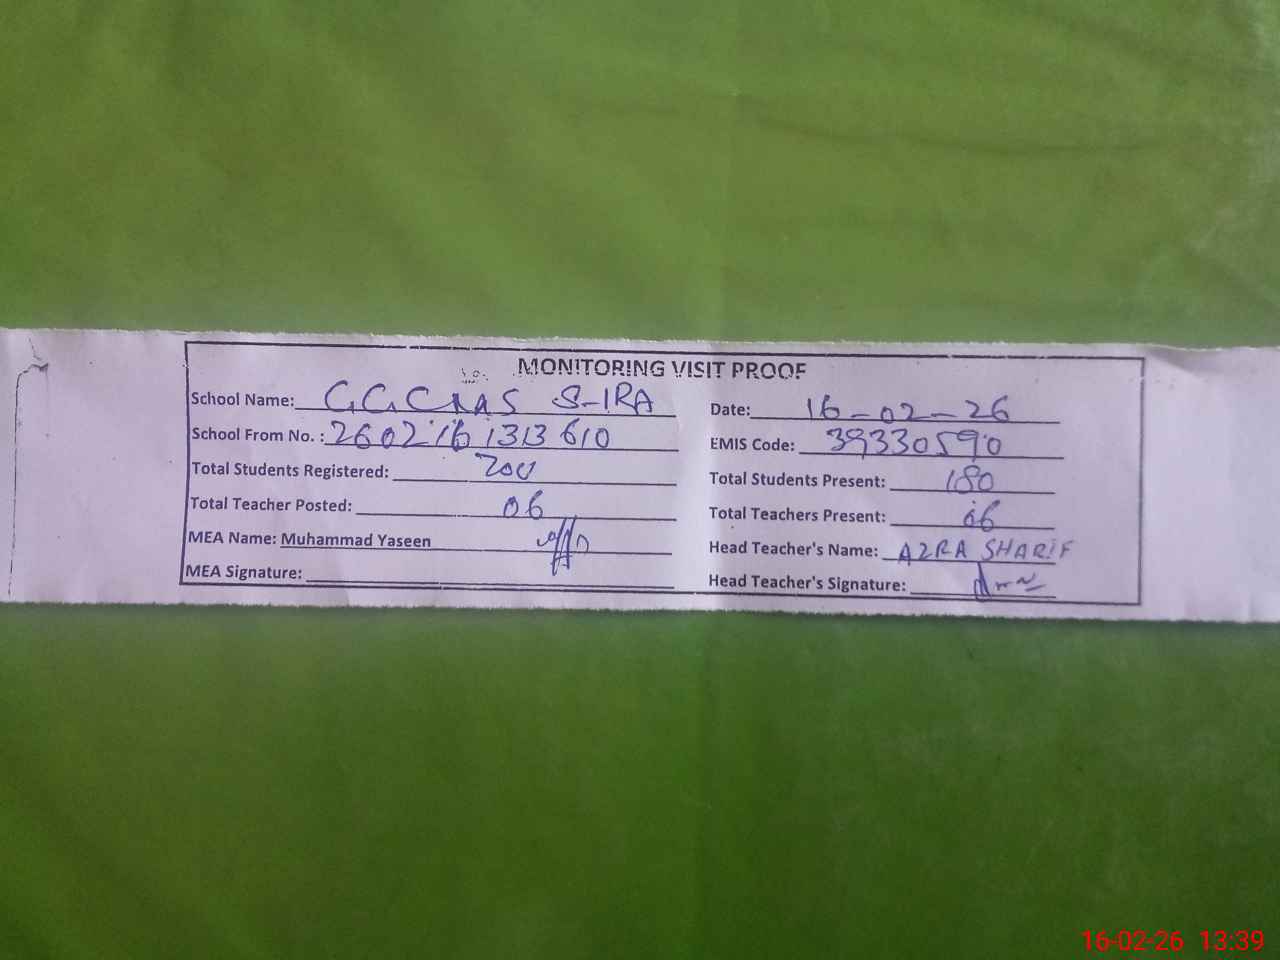 MONITORING VISIT PROOF
School Name: S-IRA
Date: 16-02-26
School From No. : 260216 1313 610
EMIS Code: 39330590
Total Students Registered: 200
Total Students Present: 180
Total Teacher Posted: 06
Total Teachers Present: 06
MEA Name: Muhammad Yaseen
Head Teacher's Name: AZRA SHARIF
MEA Signature:
Head Teacher's Signature:
16-02-26 13:39